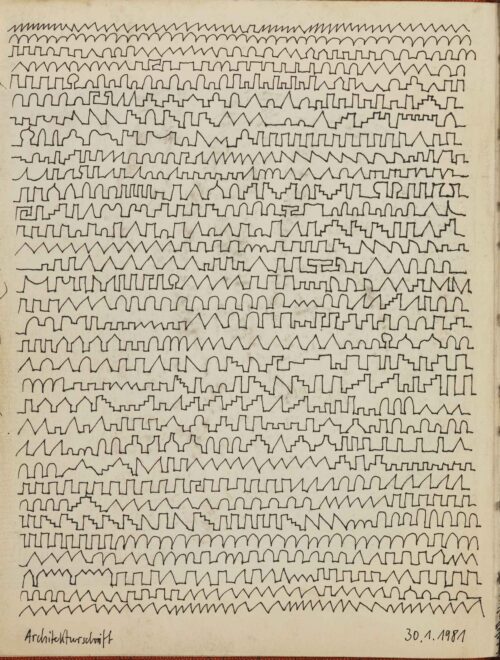 Architekturschrift
30.1.1981